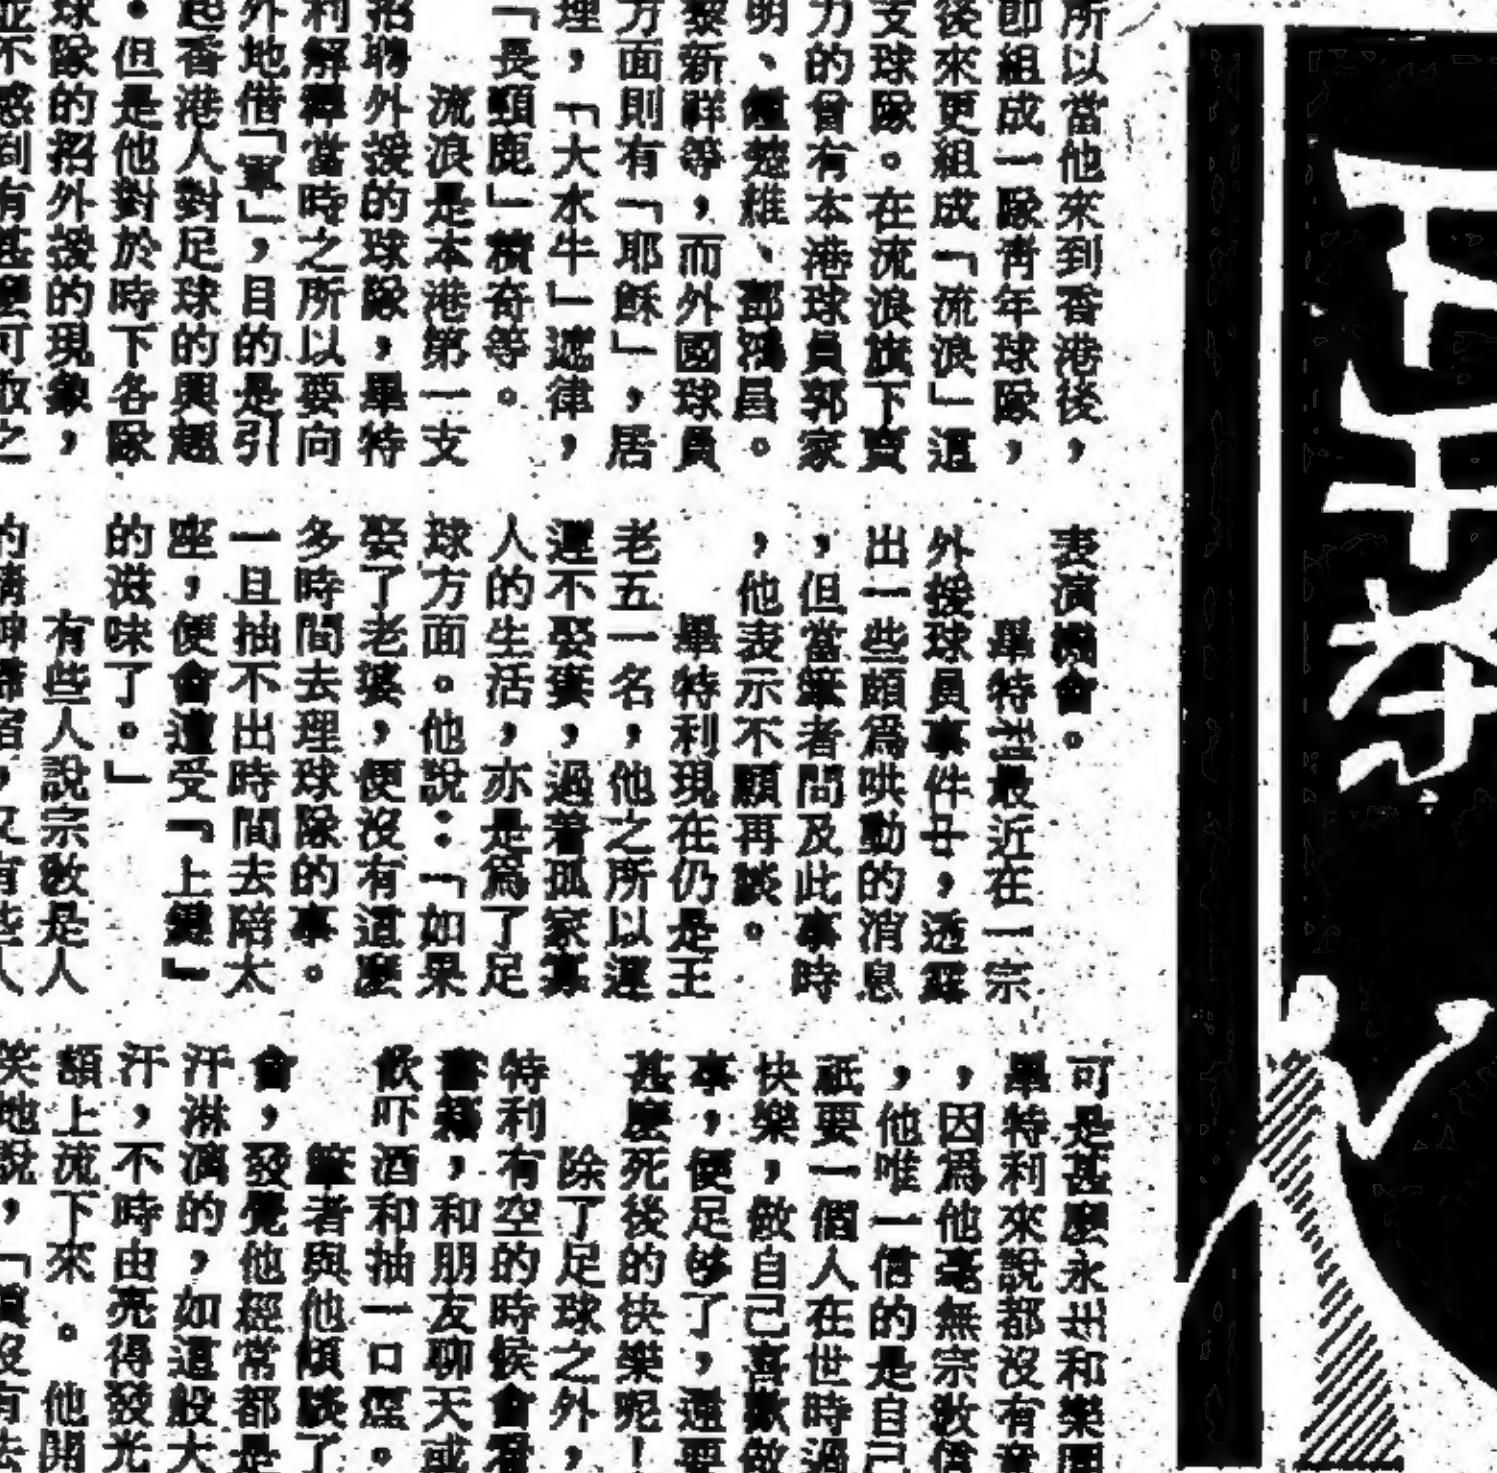 所以當他來到香港後，
即組成一隊青年球隊，
後來更組成「流浪」這
支球隊。在流浪旗下賣
力的曾有本港球員郭家
明、鍾楚維、鄧鴻昌。
黎新祥等，而外國球員
方面則有「耶穌」，居
理，「大水牛」遮律，
「長頸鹿」積奇等。
流浪是本港第一支
招聘外援的球隊，畢特
利解釋當時之所以要向
外地借「軍」，目的是引
起香港人對足球的興趣
。但是他對於時下各隊
球隊的招外援的現象，
並不感到有甚麼可取之
表演機會。
畢特利最近在一宗
外援球員事件中，透露
出一些頗爲哄動的消息
，但當筆者問及此事時
，他表示不願再談。
畢特利現在仍是王
老五一名，他之所以遲
遲不娶妻，過着孤家寡
人的生活，亦是爲了足
球方面。他說：「如果
娶了老婆，便沒有這麼
多時間去理球隊的事。
一旦抽不出時間去陪太
座，便會遭受『上鏈』
的滋味了。」
有些人說宗敎是人
的精神
又有些人
可是甚麼永
和樂園
畢特利來說都沒有意
，因爲他毫無宗敎信
，他唯一信的是自己
祇要一個人在世時過
快樂，做自己喜歡做
事，便足够了，還要
甚麼死後的快樂呢！
除了足球之外，
特利有空的時候會看
書籍，和朋友聊天或
飲吓酒和抽一口煙。
筆者與他傾談了
會，發覺他經常都是
汗淋漓的，如這般大
汗，不時由亮得發光
額上流下來。他開
笑地說，「眞沒有法